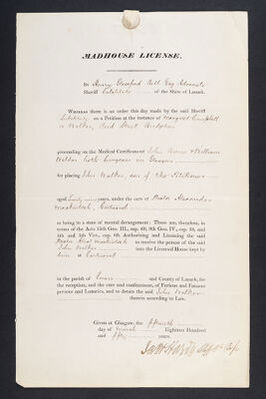 MADHOUSE LICENSE.
By Henry Glassford Bell Esq Advocate
Sheriff Substitute of the Shire of Lanark.
WHEREAS there is an order this day made by the said Sheriff
Substitute on a Petition at the instance of Margaret Campbell
or Walker, Street
proceeding on the Medical Certificates John and William
both Surgeons in Glasgow
for placing John Walker, son of the Petitioner
aged years, under the care of
Mackintosh,
as being in a state of mental derangement: These are, therefore, in
terms of the Acts 55th Geo. III., cap. 69, 9th Geo. IV., cap. 34, and
4th and 5th Vict., cap. 60, Authorising and Licensing the said
Mackintosh to receive the person of the said
John Walker into the Licensed House kept by
him at
in the parish of Govan and County of Lanark, for
the reception, and the care and confinement, of Furious and Fatuous
persons and Lunatics, and to detain the said John Walker
therein according to Law.
Given at Glasgow, the fifteenth
day of Eighteen Hundred
and fifty years.